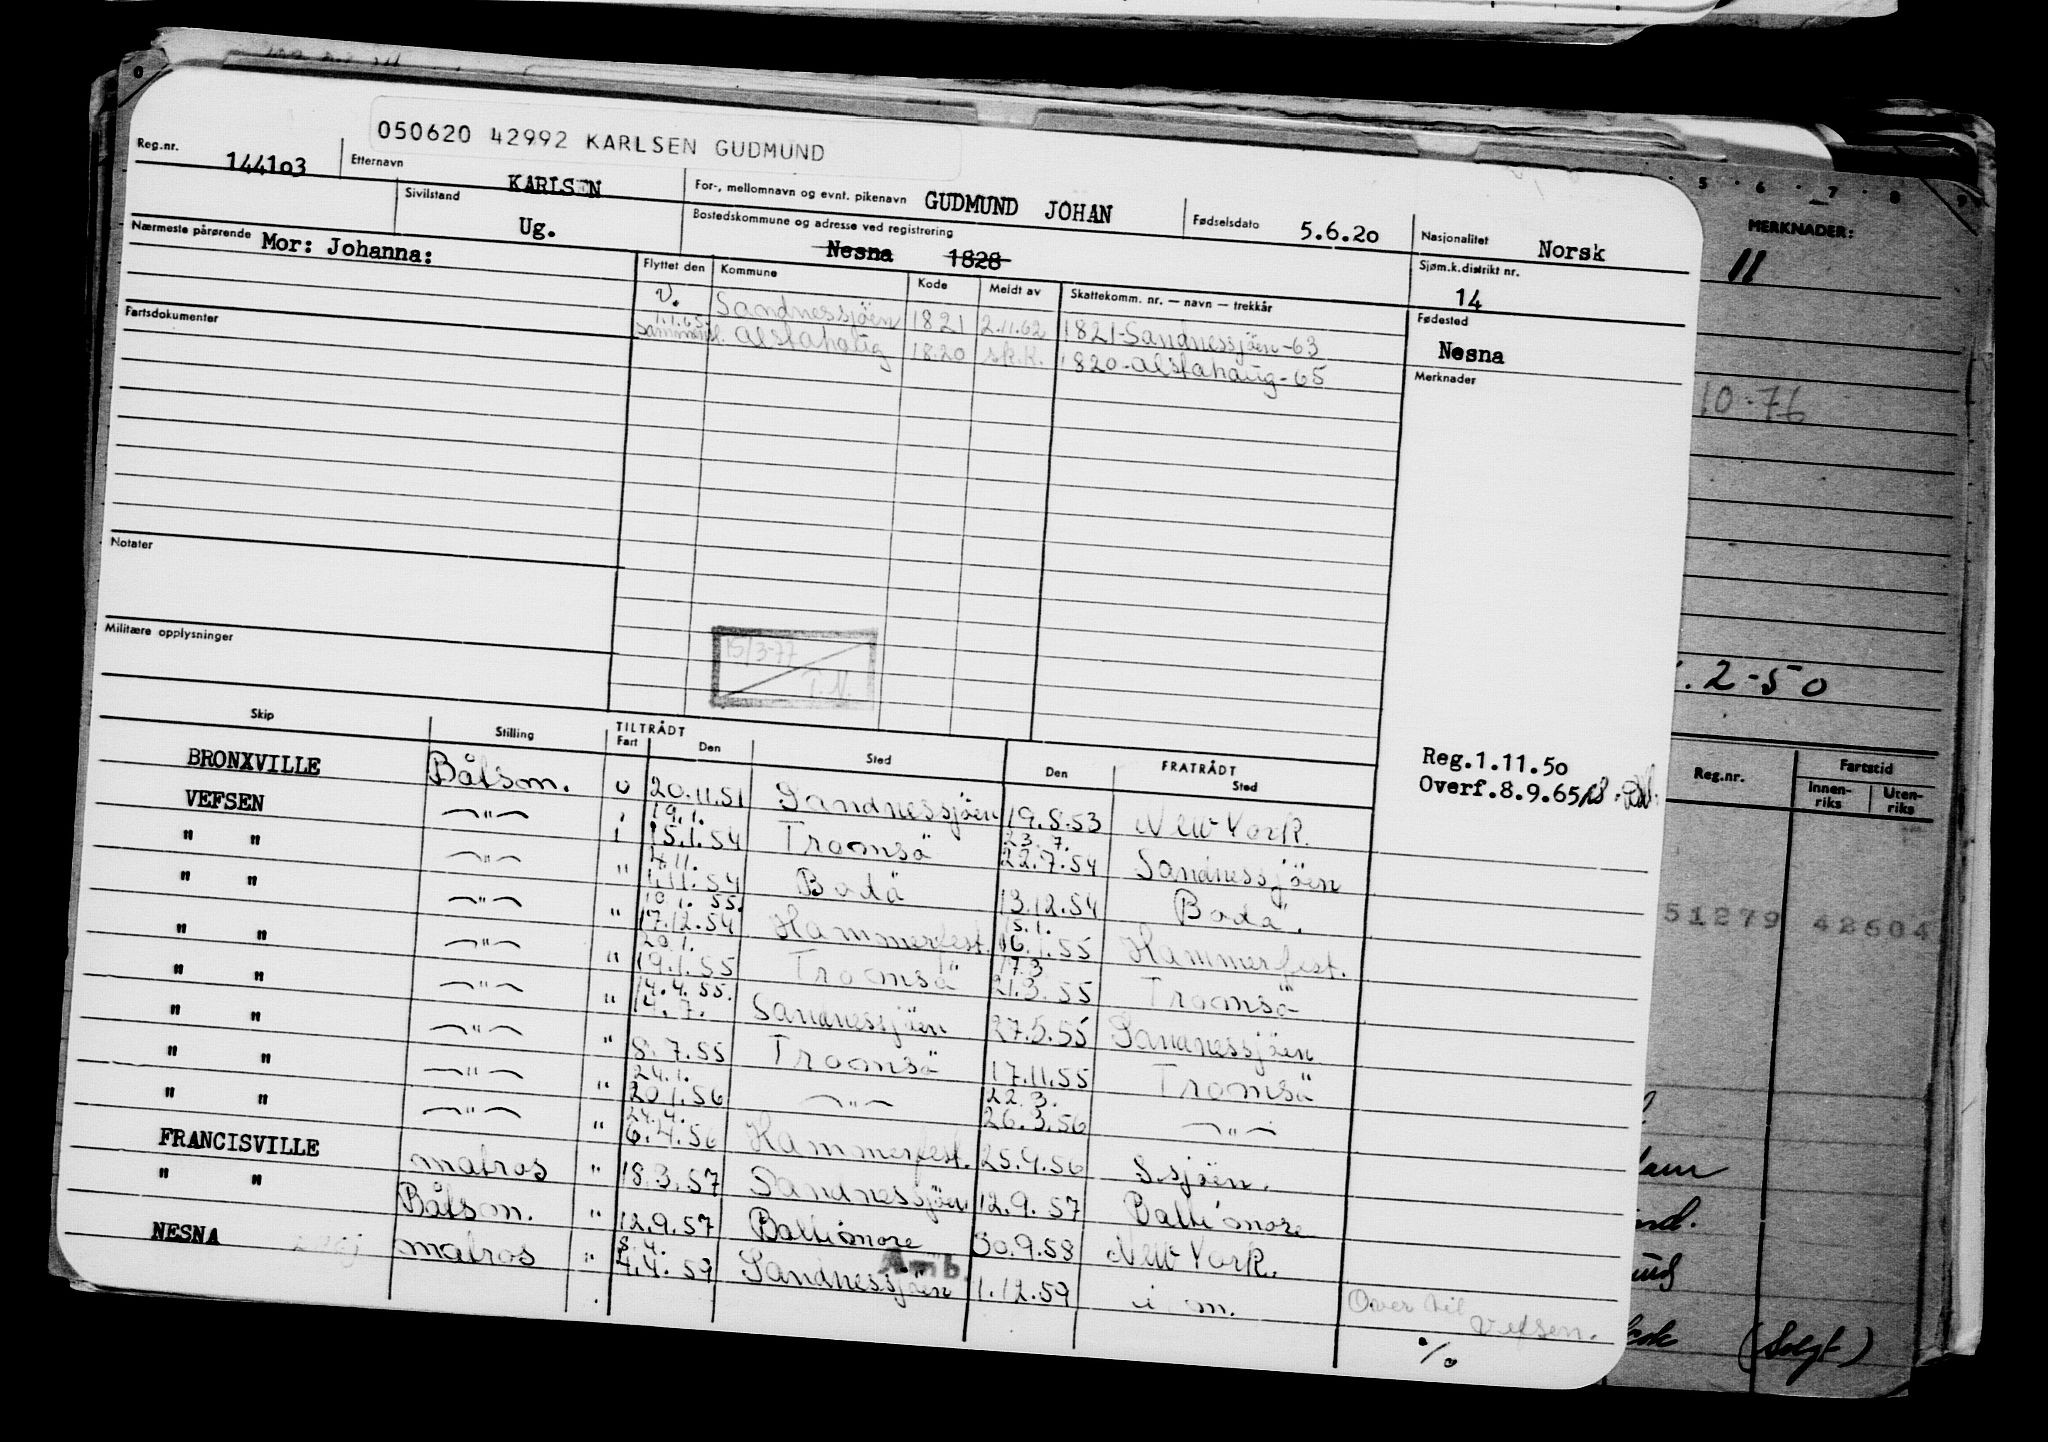 050620 42992 KARLSEN GUDMUND
Reg.nr. 1441o3 Etternavn KARLSEN For-, mellomnavn og evnt. pikenavn GUDMUND JOHAN Fødselsdato 5.6.2o Nasjonalitet Norsk
Sivilstand Ug. Bostedskommune og adresse ved registrering Nesna 1828 Sjøm.k.distrikt nr. 14
Nærmeste pårørende Mor: Johanna:
Flyttet den Kommune Kode Meldt av Skattekomm. nr. — navn — trekkår Fødested Nesna
v. Sandnessjöen 1821 2.11.62 1821-Sandnessjöen-63
1.1.65 Alstahaug 1820 sk.k. 1820-Alstahaug-65
Fartsdokumenter
Merknader
Notater
Militære opplysninger
15/3-77
T.N.
Reg.1.11.5o
Overf.8.9.65
Skip Stilling TILTRÅDT Fart Den Sted FRATRÅDT Den Sted
BRONXVILLE Båtsm. u 20.11.51 Sandnessjöen 19.8.53 New York.
19.1. 23.7.
VEFSEN —"— i 15.1.54 Tromsö 22.7.54 Sandnessjöen
4.11.
" " —"— " 1.11.54 Bodö 13.12.54 Bodö.
10.1.55. 15.1.
" " —"— " 17.12.54 Hammerfest. 16.1.55 Hammerfest.
20.1. 17.3
" " —"— " 19.1.55 Tromsö 21.3.55 Tromsö
14.4.55. Sandnessjöen 27.5.55 Sandnessjöen
" " —"— "
14.7.
" " —"— " 8.7.55 Tromsö 17.11.55 Tromsö
24.1. 22.3.
" " —"— " 20.1.56 —"— 26.3.56 —"—
24.4.
" " —"— " 6.4.56 Hammerfest. 25.9.56 S.sjöen.
FRANCISVILLE matros " 18.3.57 Sandnessjöen 12.9.57 Baltimore
" " Båtsm. " 12.9.57 Baltimore 30.9.58 New York.
NESNA matros " 4.4.59 Sandnessjöen 1.12.59 i m.
Amb.
Over til Vefsen.
%
5 6 7 8 9
MERKNADER:
11
10.76
2-50
Reg.nr. Fartstid
Innenriks Utenriks
51279 42604
(Solgt)